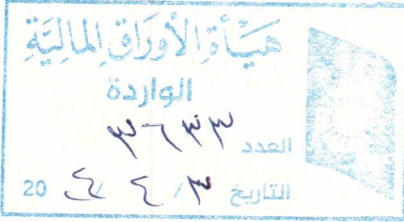 هيأة الأوراق المالية
الواردة
العدد ٣٦٣٣
التاريخ ٣ / ٤ / 20